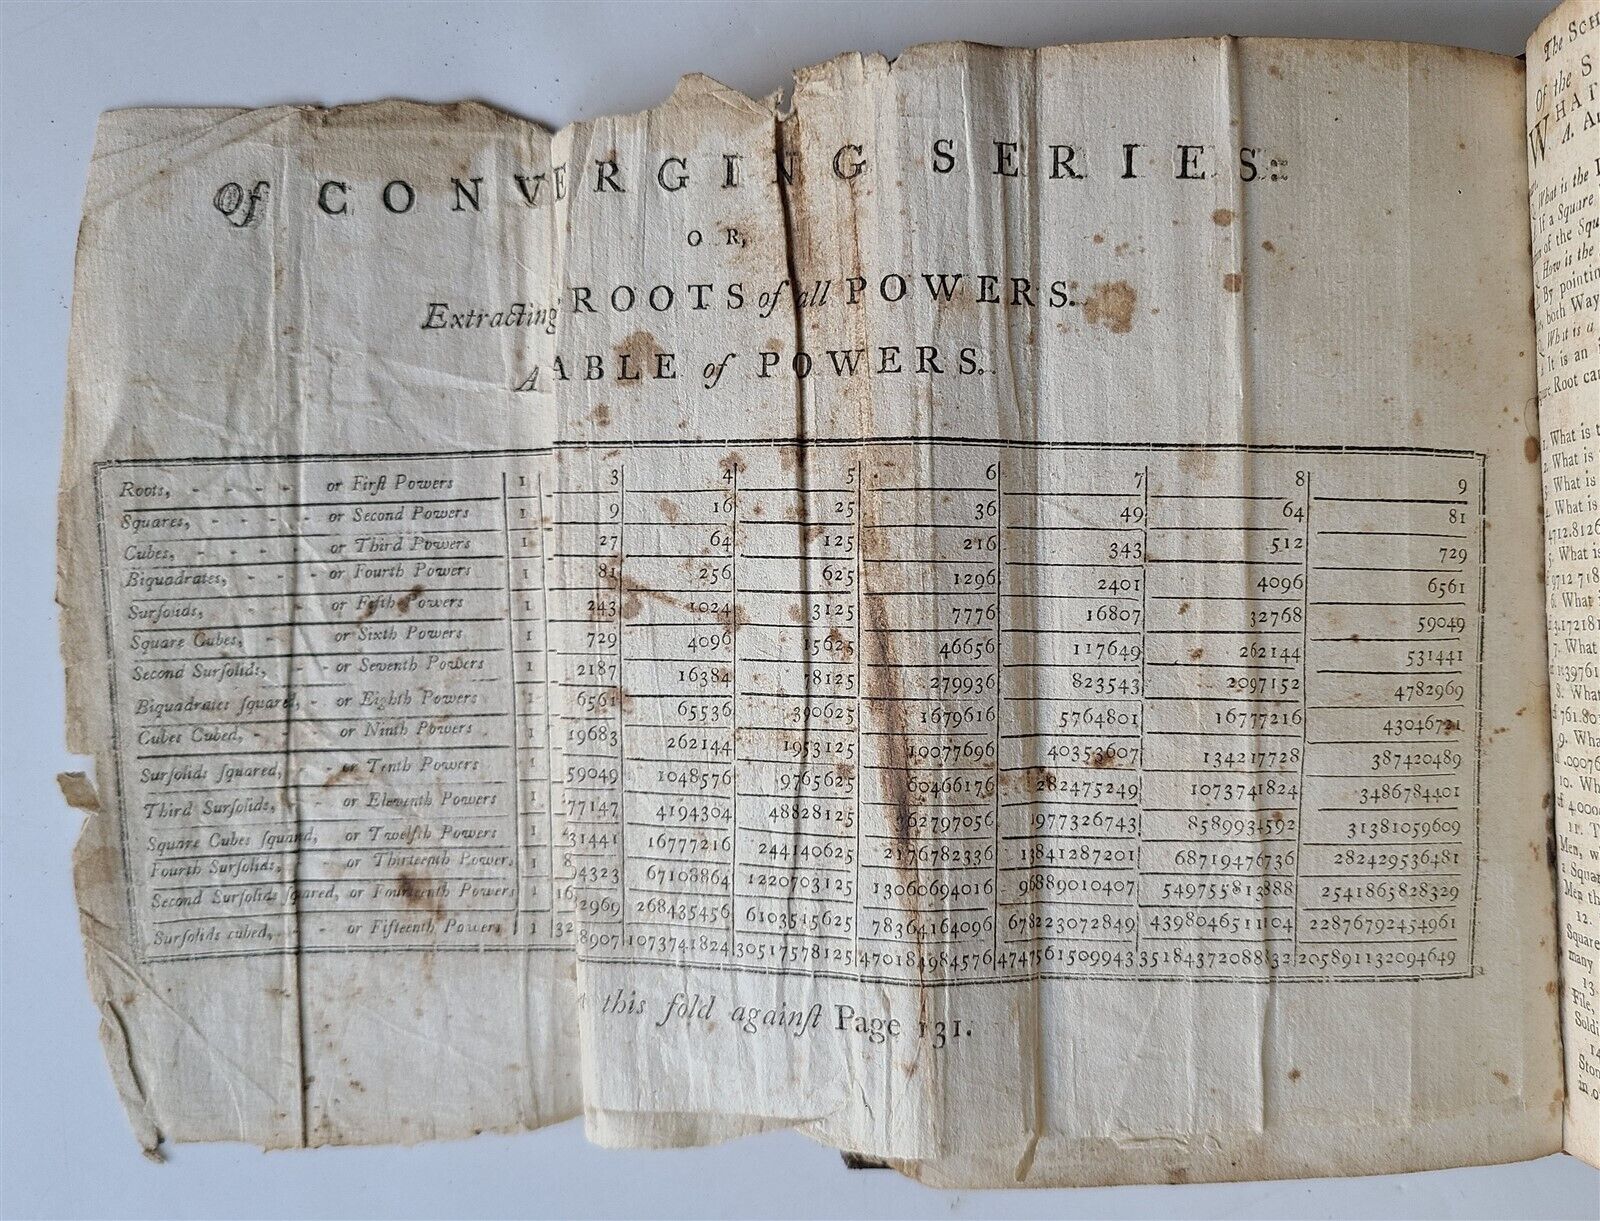 Of CONVERGING SERIES:
OR,
Extracting ROOTS of all POWERS.
A ABLE of POWERS.
Roots, - - - - or First Powers 1 3 4 5 6 7 8 9
Squares, - - - - or Second Powers 1 9 16 25 36 49 64 81
Cubes, - - - - or Third Powers 1 27 64 125 216 343 512 729
Biquadrates, - - - or Fourth Powers 1 81 256 625 1296 2401 4096 6561
Surſolids, - - - or Fifth Powers 1 243 1024 3125 7776 16807 32768 59049
Square Cubes, - - or Sixth Powers 1 729 4096 15625 46656 117649 262144 531441
Second Surſolids, - - or Seventh Powers 1 2187 16384 78125 279936 823543 2097152 4782969
Biquadrates ſquared, - or Eighth Powers 1 6561 65536 390625 1679616 5764801 16777216 43046721
Cubes Cubed, - - - or Ninth Powers 1 19683 262144 1953125 10077696 40353607 134217728 387420489
Surſolids ſquared, - - or Tenth Powers 1 59049 1048576 9765625 60466176 282475249 1073741824 3486784401
Third Surſolids, - - or Eleventh Powers 1 77147 4194304 48828125 362797056 1977326743 8589934592 31381059609
Square Cubes ſquared, or Twelfth Powers 1 31441 16777216 244140625 2176782336 13841287201 68719476736 282429536481
Fourth Surſolids, - - or Thirteenth Powers 1 8 94323 67108864 1220703125 13060694016 96889010407 549755813888 2541865828329
Second Surſolids ſquared, or Fourteenth Powers 1 16 82969 268435456 6103515625 78364164096 678223072849 4398046511104 22876792454961
Surſolids cubed, - - or Fifteenth Powers 1 32 8907 1073741824 30517578125 470184984576 4747561509943 35184372088832 205891132094649
this fold againſt Page 131.
The SCH
Of the S
WHAT
A. A
What is the
If a Square
of the Squ
How is the
By pointin
both Way
What is a
It is an
Root can
1. What is t
2. What is
3. What is
4. What is
4712.8126
5. What is
9712.718
6. What i
3.172181
7. What
.139761
8. What
761.801
9. Wha
.00076
10. Wh
4.000
11. T
Men, w
a Squar
Men th
12.
Square
many
13.
File,
Soldi
14
Ston
in